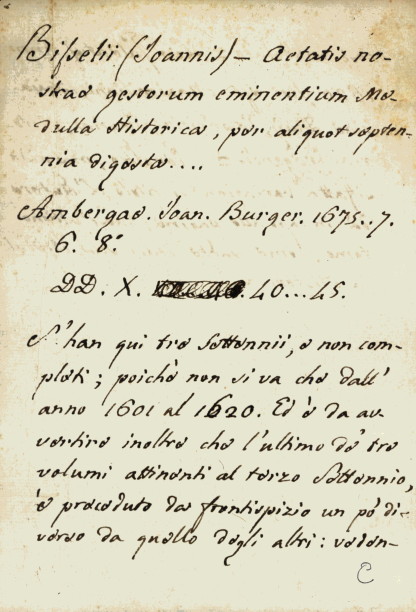 Bisselii (Ioannis) — Aetatis no-
strae gestorum eminentium Me-
dulla Historica, per aliquot septen-
nia digesta....
Ambergae. Ioan. Burger. 1675..7.
6. 8.°
DD. X. 40...45.
S'han qui tre Settennii, e non com-
pleti; poichè non si va che dall'
anno 1601 al 1620. Ed è da av
vertire inoltre che l'ultimo de' tre
volumi attinenti al terzo Settennio,
è preceduto da frontispizio un pò di-
verso da quello degli altri: veden-
C